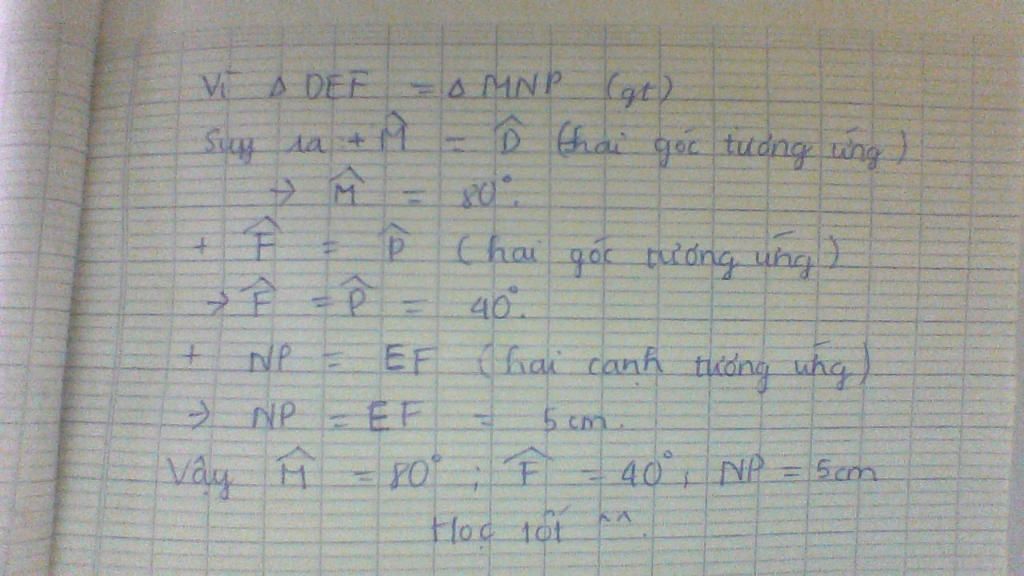 Vì Δ DEF = Δ MNP (gt)
Suy ra + M̂ = D̂ (hai góc tương ứng)
→ M̂ = 80°.
+ F̂ = P̂ (hai góc tương ứng)
→ F̂ = P̂ = 40°.
+ NP = EF (hai cạnh tương ứng)
→ NP = EF = 5 cm.
Vậy M̂ = 80° ; F̂ = 40° ; NP = 5cm
Học tốt ^^.